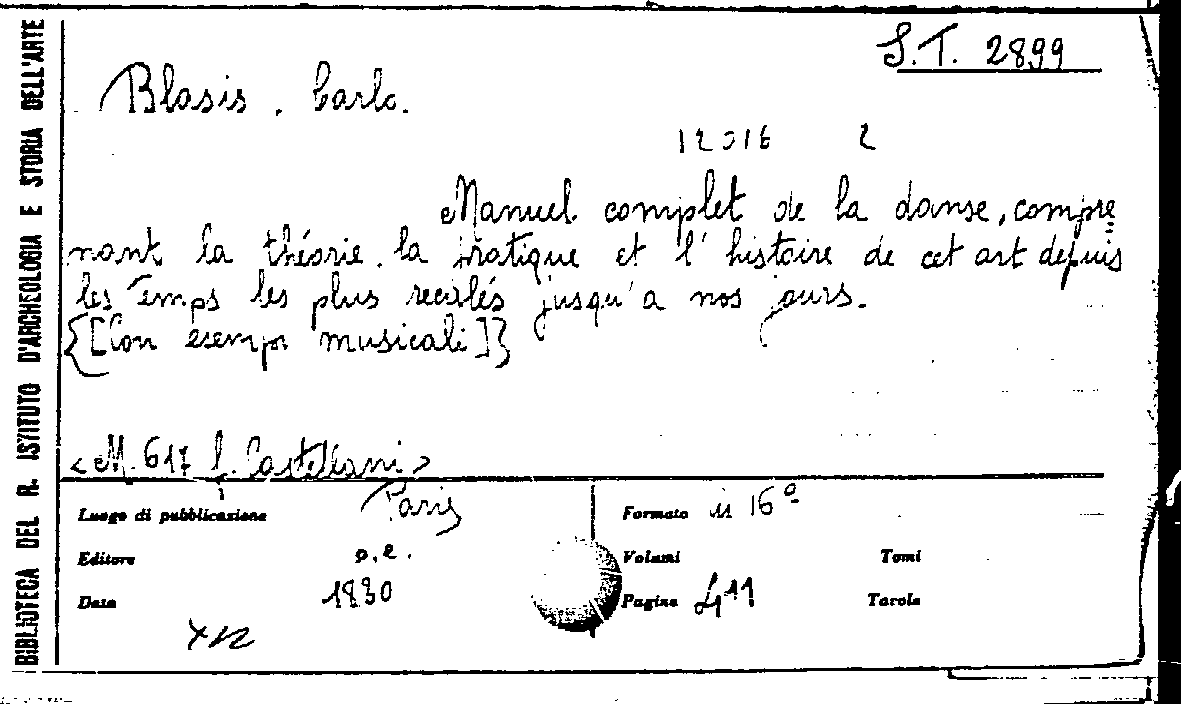 BIBLIOTECA DEL R. ISTITUTO D'ARCHEOLOGIA E STORIA DELL'ARTE
S.T. 2899
Blasis. Carlo.
2
Manuel complet de la danse, compre=
nant la théorie, la pratique et l'histoire de cet art depuis
les temps les plus reculés jusqu'a nos jours.
{[Con esempi musicali]}
<M. 617 L. Castellani>
Luogo di pubblicazione Paris
Formato in 16º
Editore s.e.
Volumi Tomi
Data 1830
Pagine 411 Tavole